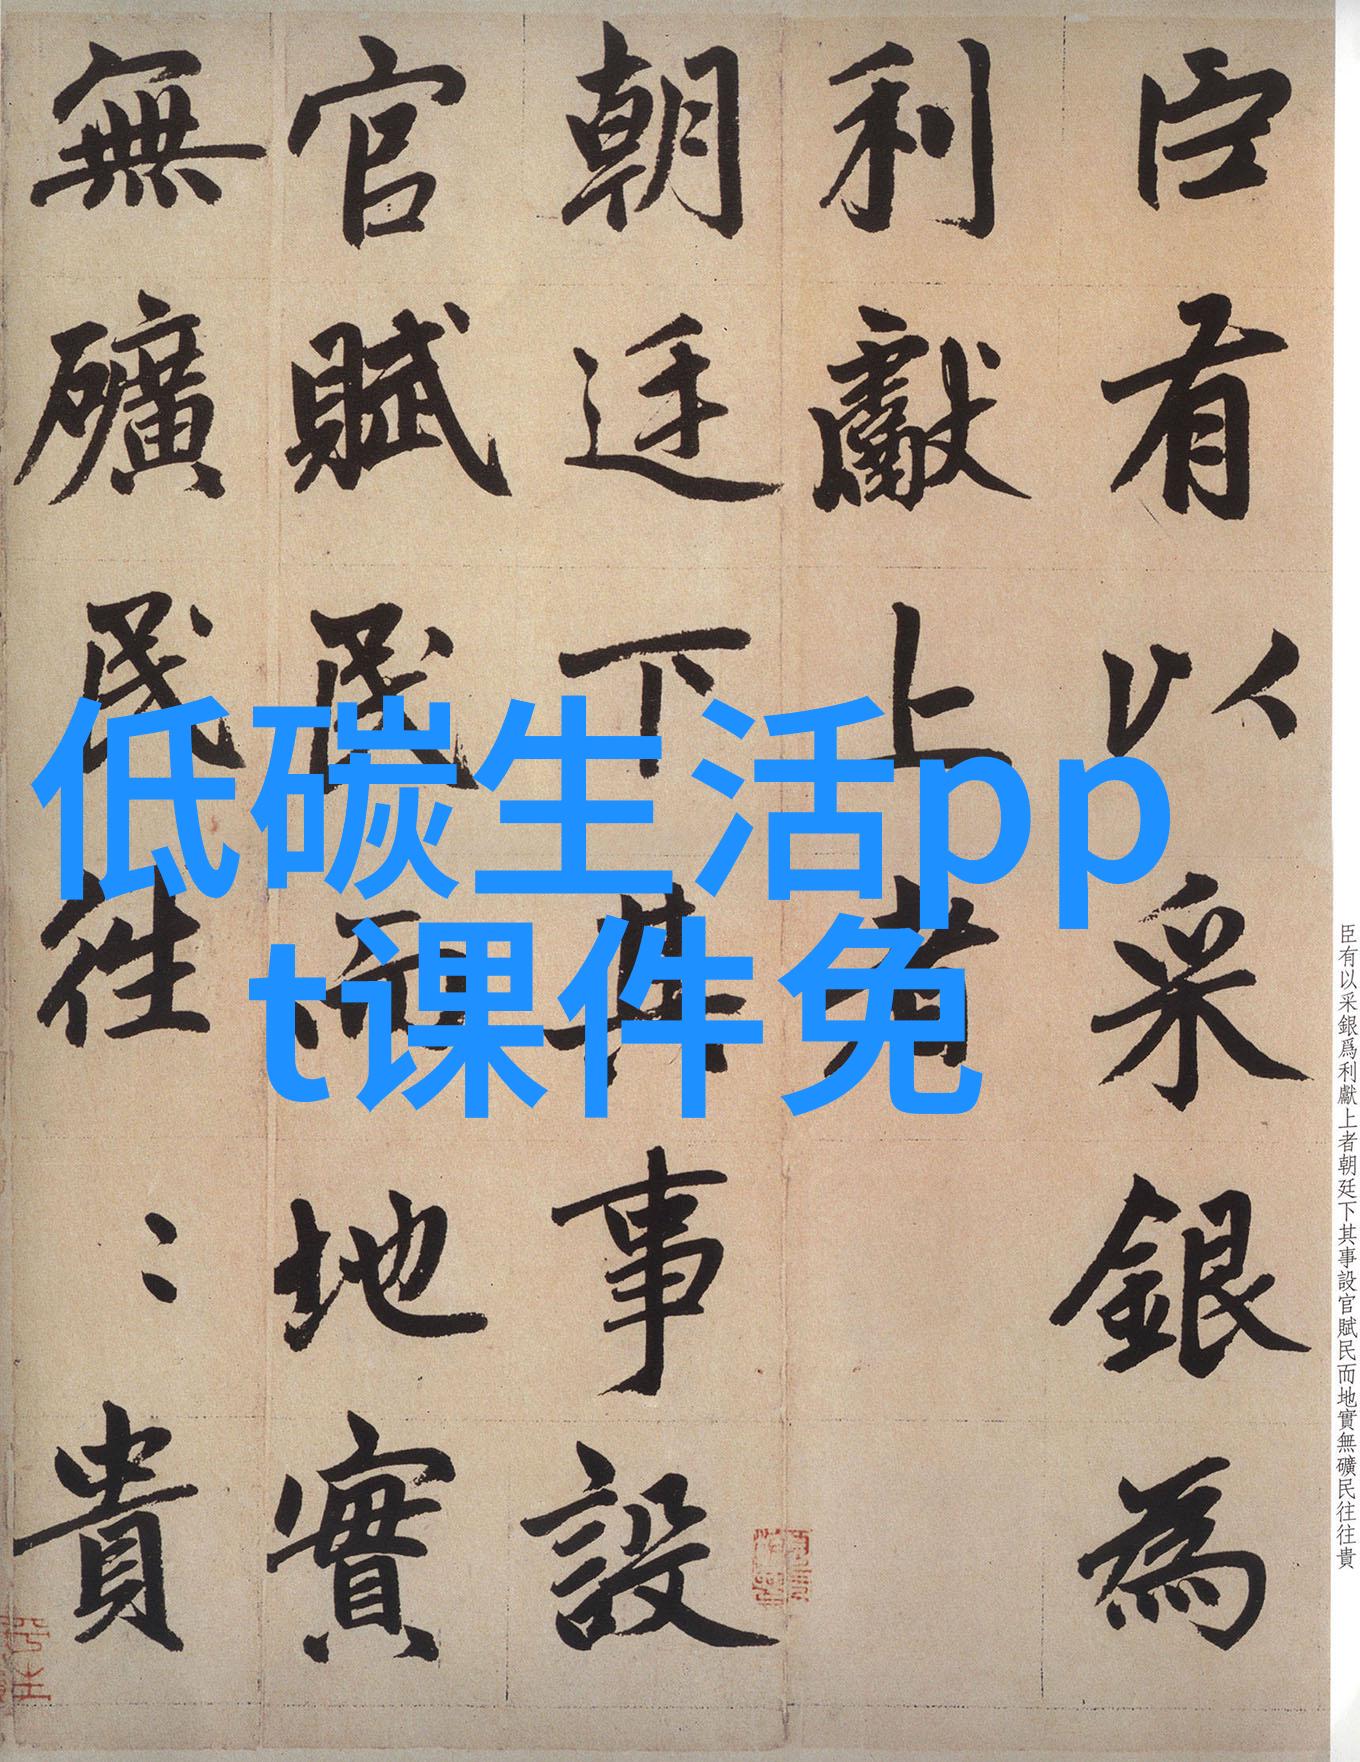 臣有以采銀為
利獻上者
朝廷下其事設
官賦民而地實
無礦民往〻貴
低碳生活pp
t课件免
臣有以采銀爲利獻上者朝廷下其事設官賦民而地實無礦民往往貴